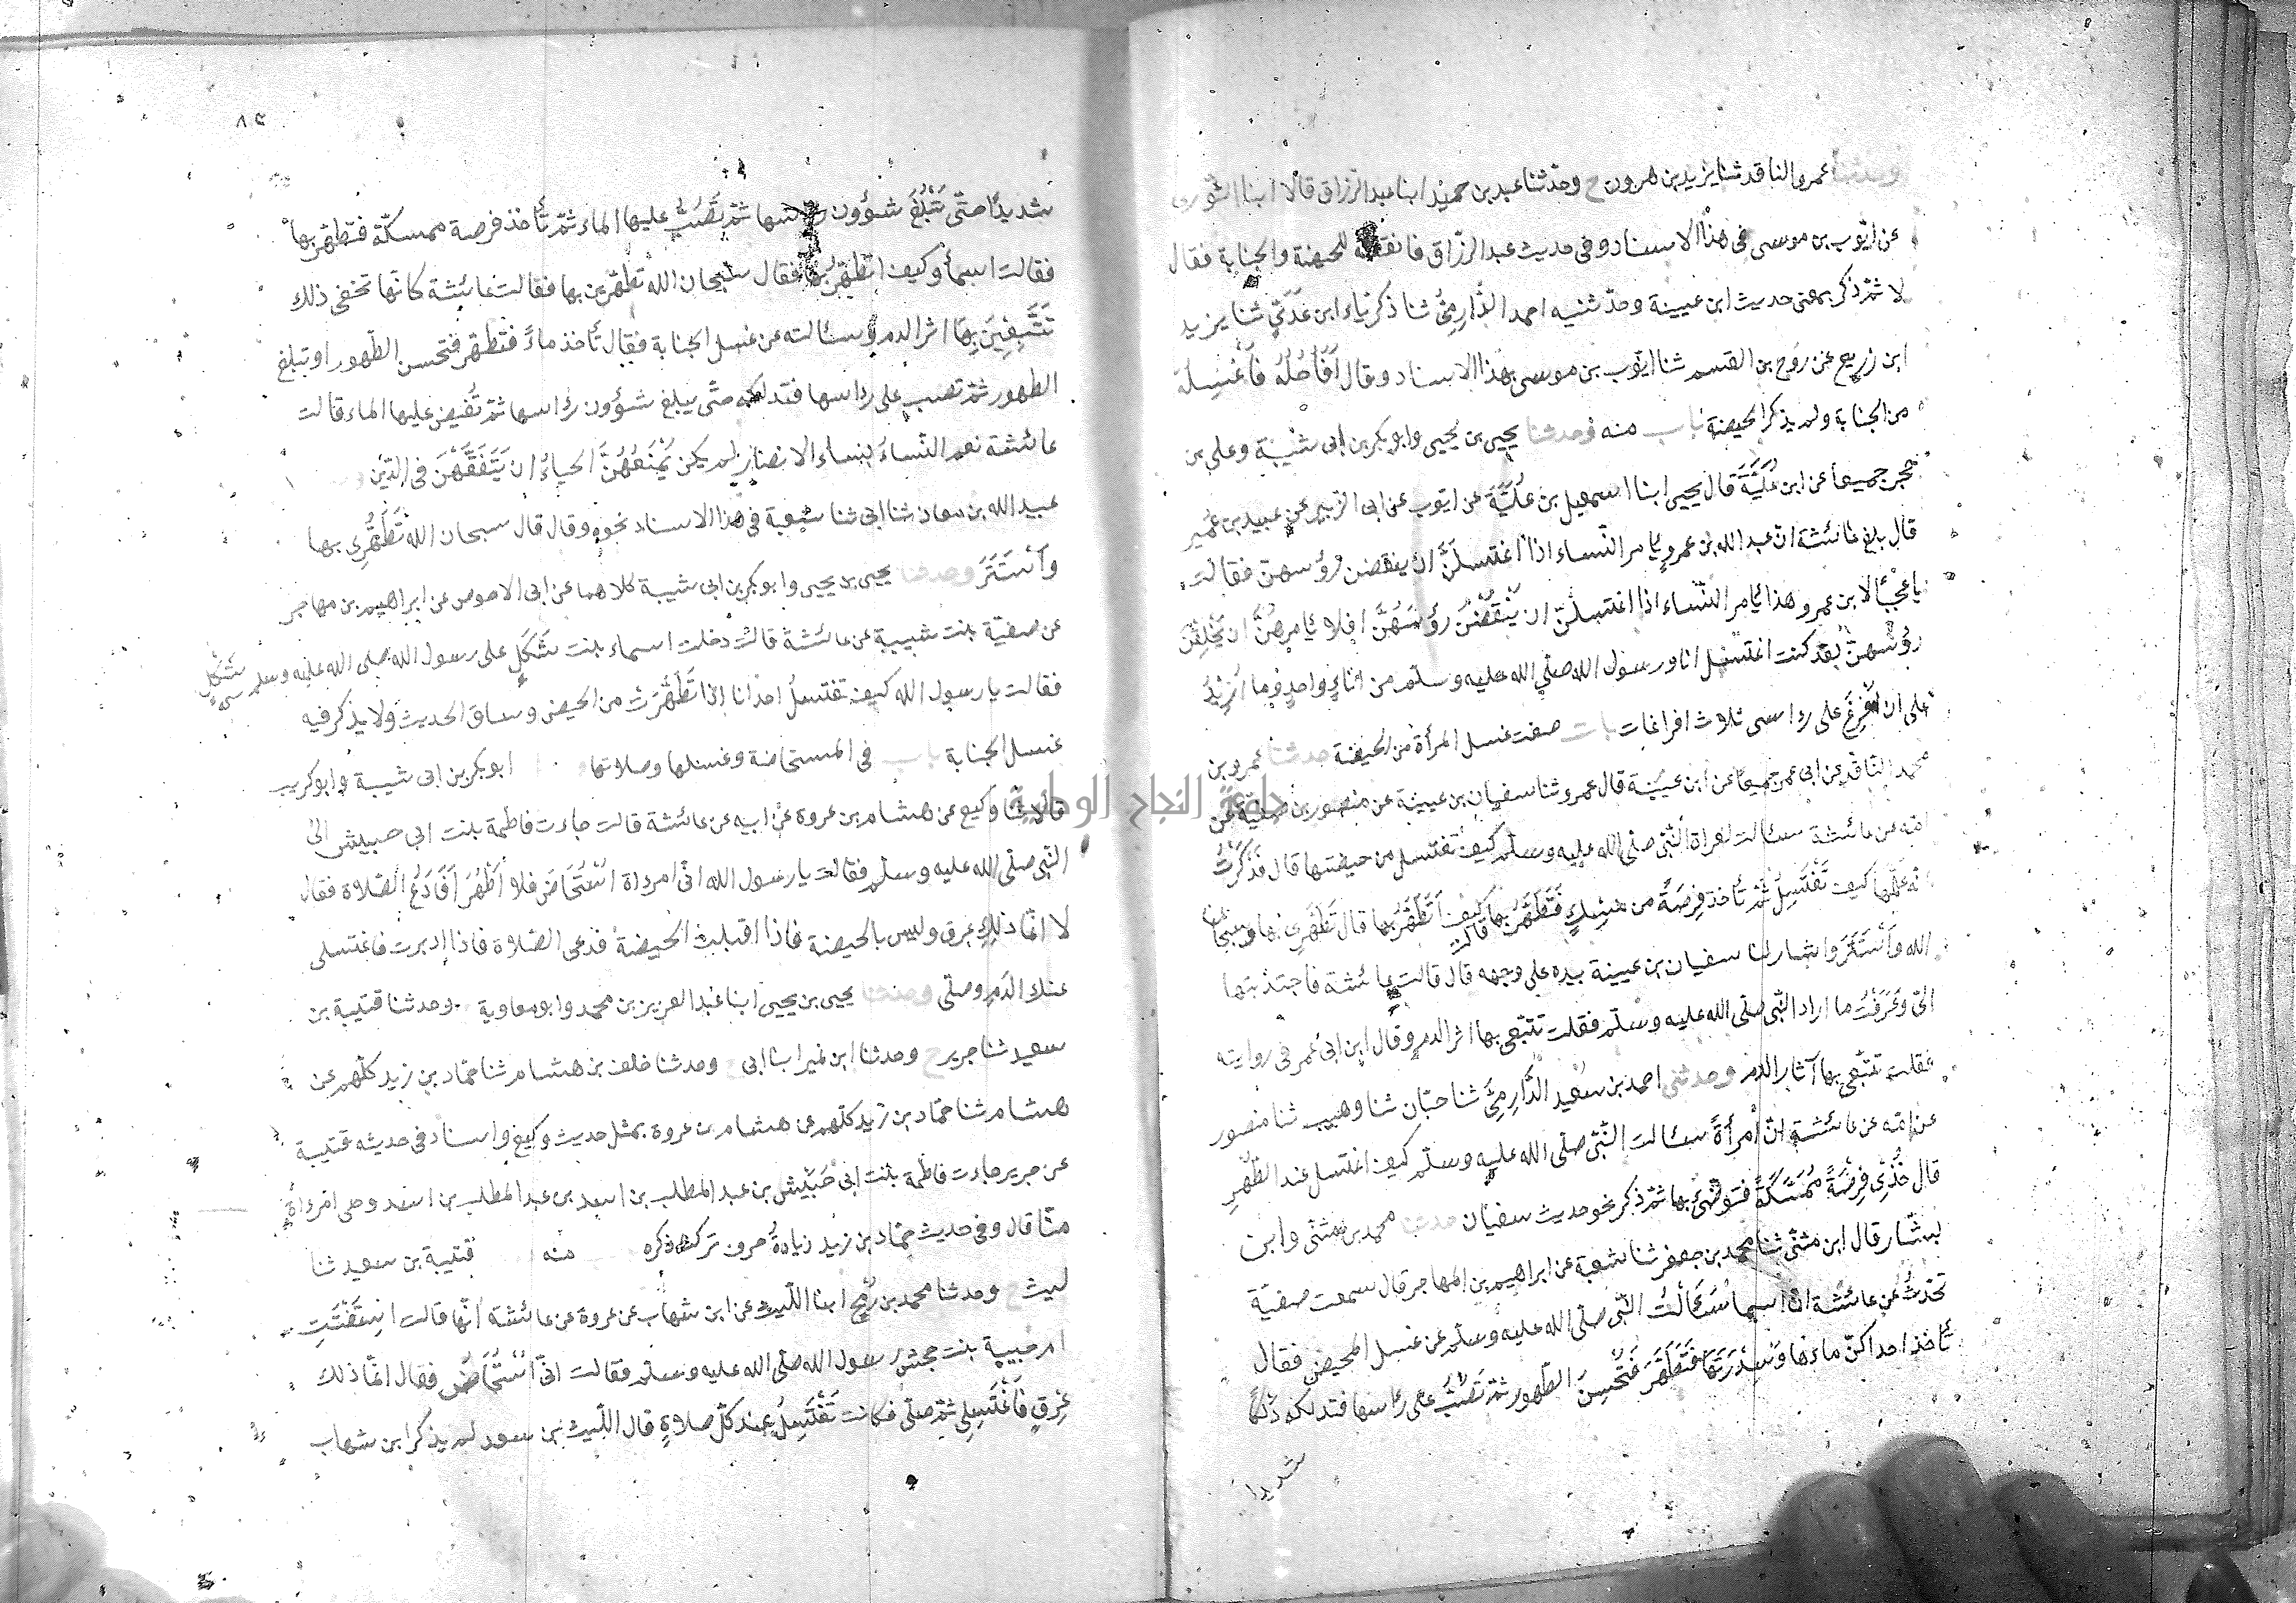 وحدثنا عمرو الناقد ثنا يزيد بن هرون ح وحدثنا عبد بن حميد ابنا عبد الرزاق قالا ابنا الثوري
عن ايوب بن موسى فى هذا الاسناد وفى حديث عبد الرزاق فانقضه للحيضة والجنابة فقال
لا ثم ذكر بمعنى حديث ابن عيينة وحدثنيه احمد الدارمي ثنا زكرياء ابن عدي ثنا يزيد
ابن زريع عن روح بن القسم ثنا ايوب بن موسى بهذا الاسناد وقال أفأحله فأغسله
من الجنابة ولم يذكر الحيضة باب منه وحدثنا يحيى بن يحيى وابو بكر بن ابى شيبة وعلي بن
حجر جميعا عن ابن علية قال يحيى ابنا اسمعيل بن علية عن ايوب عن ابى الزبير عن عبيد بن عمير
قال بلغ عائشة ان عبد الله بن عمرو يامر النساء اذا اغتسلن ان ينقضن رؤسهن فقالت
يا عجبا لابن عمرو هذا يامر النساء اذا اغتسلن ان ينقضن رؤسهن افلا يامرهن ان يحلقن
رؤسهن لقد كنت اغتسل انا ورسول الله صلى الله عليه وسلم من اناء واحد وما ازيد
على ان افرغ على راسى ثلاث افراغات باب صفت غسل المرأة من الحيضة حدثنا عمرو بن
محمد الناقد وابن ابى عمر جميعا عن ابن عيينة قال عمرو ثنا سفيان بن عيينة عن منصور بن صفية عن
امه عن عائشة سئالت امراة النبى صلى الله عليه وسلم كيف تغتسل من حيضتها قال فذكرت
انه علمها كيف تغتسل ثم تأخذ فرصة من مسك فتطهر بها قالت كيف أتطهر بها قال تطهري بها وسبحان
الله وأستتر واشار لنا سفيان بن عيينة بيده على وجهه قال قالت عائشة فاجتذبتها
الى وعرفت ما اراد النبى صلى الله عليه وسلم فقلت تتبعى بها اثر الدم وقال ابن ابى عمر فى روايته
فقلت تتبعى بها آثار الدم وحدثنى احمد بن سعيد الدارمي ثنا حبان ثنا وهيب ثنا منصور
عن امه عن عائشة ان امرأة سئالت النبى صلى الله عليه وسلم كيف اغتسل عند الطهر
قال خذي فرصة ممسكة فتوضئ بها ثم ذكر نحو حديث سفيان حدثنا محمد بن مثنى وابن
بشار قال ابن مثنى ثنا محمد بن جعفر ثنا شعبة عن ابراهيم بن المهاجر قال سمعت صفية
تحدث عن عائشة ان اسما سئالت النبى صلى الله عليه وسلم عن غسل المحيض فقال
تأخذ احداكن ماءها وسدرتها فتطهر فتحسن الطهور ثم تصب على راسها فتدلكه دلكا
شديدا
٨٢
شديدا حتى تبلغ شؤون راسها ثم تصب عليها الماء ثم تأخذ فرصة ممسكة فتطهر بها
فقالت اسما وكيف اتطهر بها فقال سبحان الله تطهرين بها فقالت عائشة كانها تخفى ذلك
تتبعين بها اثر الدم وسئالته عن غسل الجنابة فقال تأخذ ماء فتطهر فتحسن الطهور او تبلغ
الطهور ثم تصب على راسها فتدلكه حتى يبلغ شؤون رأسها ثم تفيض عليها الماء قالت
عائشة نعم النساء نساء الانصار لم يكن يمنعهن الحياء ان يتفقهن فى الدين
عبيد الله بن معاذ ثنا ابى ثنا شعبة فى هذا الاسناد نحوه وقال قال سبحان الله تطهري بها
وأستتر وحدثنا يحيى بن يحيى وابو بكر بن ابى شيبة كلاهما عن ابى الاحوص عن ابراهيم بن مهاجر
عن صفية بنت شيبة عن عائشة قالت دخلت اسماء بنت شكل على رسول الله صلى الله عليه وسلم
شكل
فقالت يا رسول الله كيف تغتسل احدانا اذا تطهرت من الحيض وساق الحديث ولا يذكر فيه
غسل الجنابة باب فى المستحاضة وغسلها وصلاتها ابو بكر بن ابى شيبة وابو كريب
قالا ثنا وكيع عن هشام بن عروة عن ابيه عن عائشة قالت جاءت فاطمة بنت ابى حبيش الى
النبى صلى الله عليه وسلم فقالت يا رسول الله انى امرداة استحاض فلا أطهر أفأدع الصلاة فقال
لا انما ذلك عرق وليس بالحيضة فاذا اقبلت الحيضة فدعى الصلاة فاذا ادبرت فاغتسلى
عنك الدم وصلى وحدثنا يحيى بن يحيى ابنا عبد العزيز بن محمد وابو معاوية وحدثنا قتيبة بن
سعيد ثنا جرير ح وحدثنا ابن نمير ابنا ابى ح وحدثنا خلف بن هشام ثنا حماد بن زيد كلهم عن
هشام ثنا حماد بن زيد كلهم عن هشام بن عروة بمثل حديث وكيع واسناد فى حديثه قتيبة
عن جرير جاءت فاطمة بنت ابى حبيش بن عبد المطلب بن اسد بن عبد المطلب بن اسد وهى امرءاة
منا قال وفى حديث حماد بن زيد زيادة حرف تركت ذكره منه قتيبة بن سعيد ثنا
ليث ح وحدثنا محمد بن رمح ابنا الليث عن ابن شهاب عن عروة عن عائشة انها قالت استفتت
ام حبيبة بنت جحش رسول الله صلى الله عليه وسلم فقالت انى أستحاض فقال انما ذلك
عرق فأغتسلي ثم صلى فكانت تغتسل عند كل صلاة قال الليث بن سعد لم يذكر ابن شهاب
جامعة النجاح الوطنية